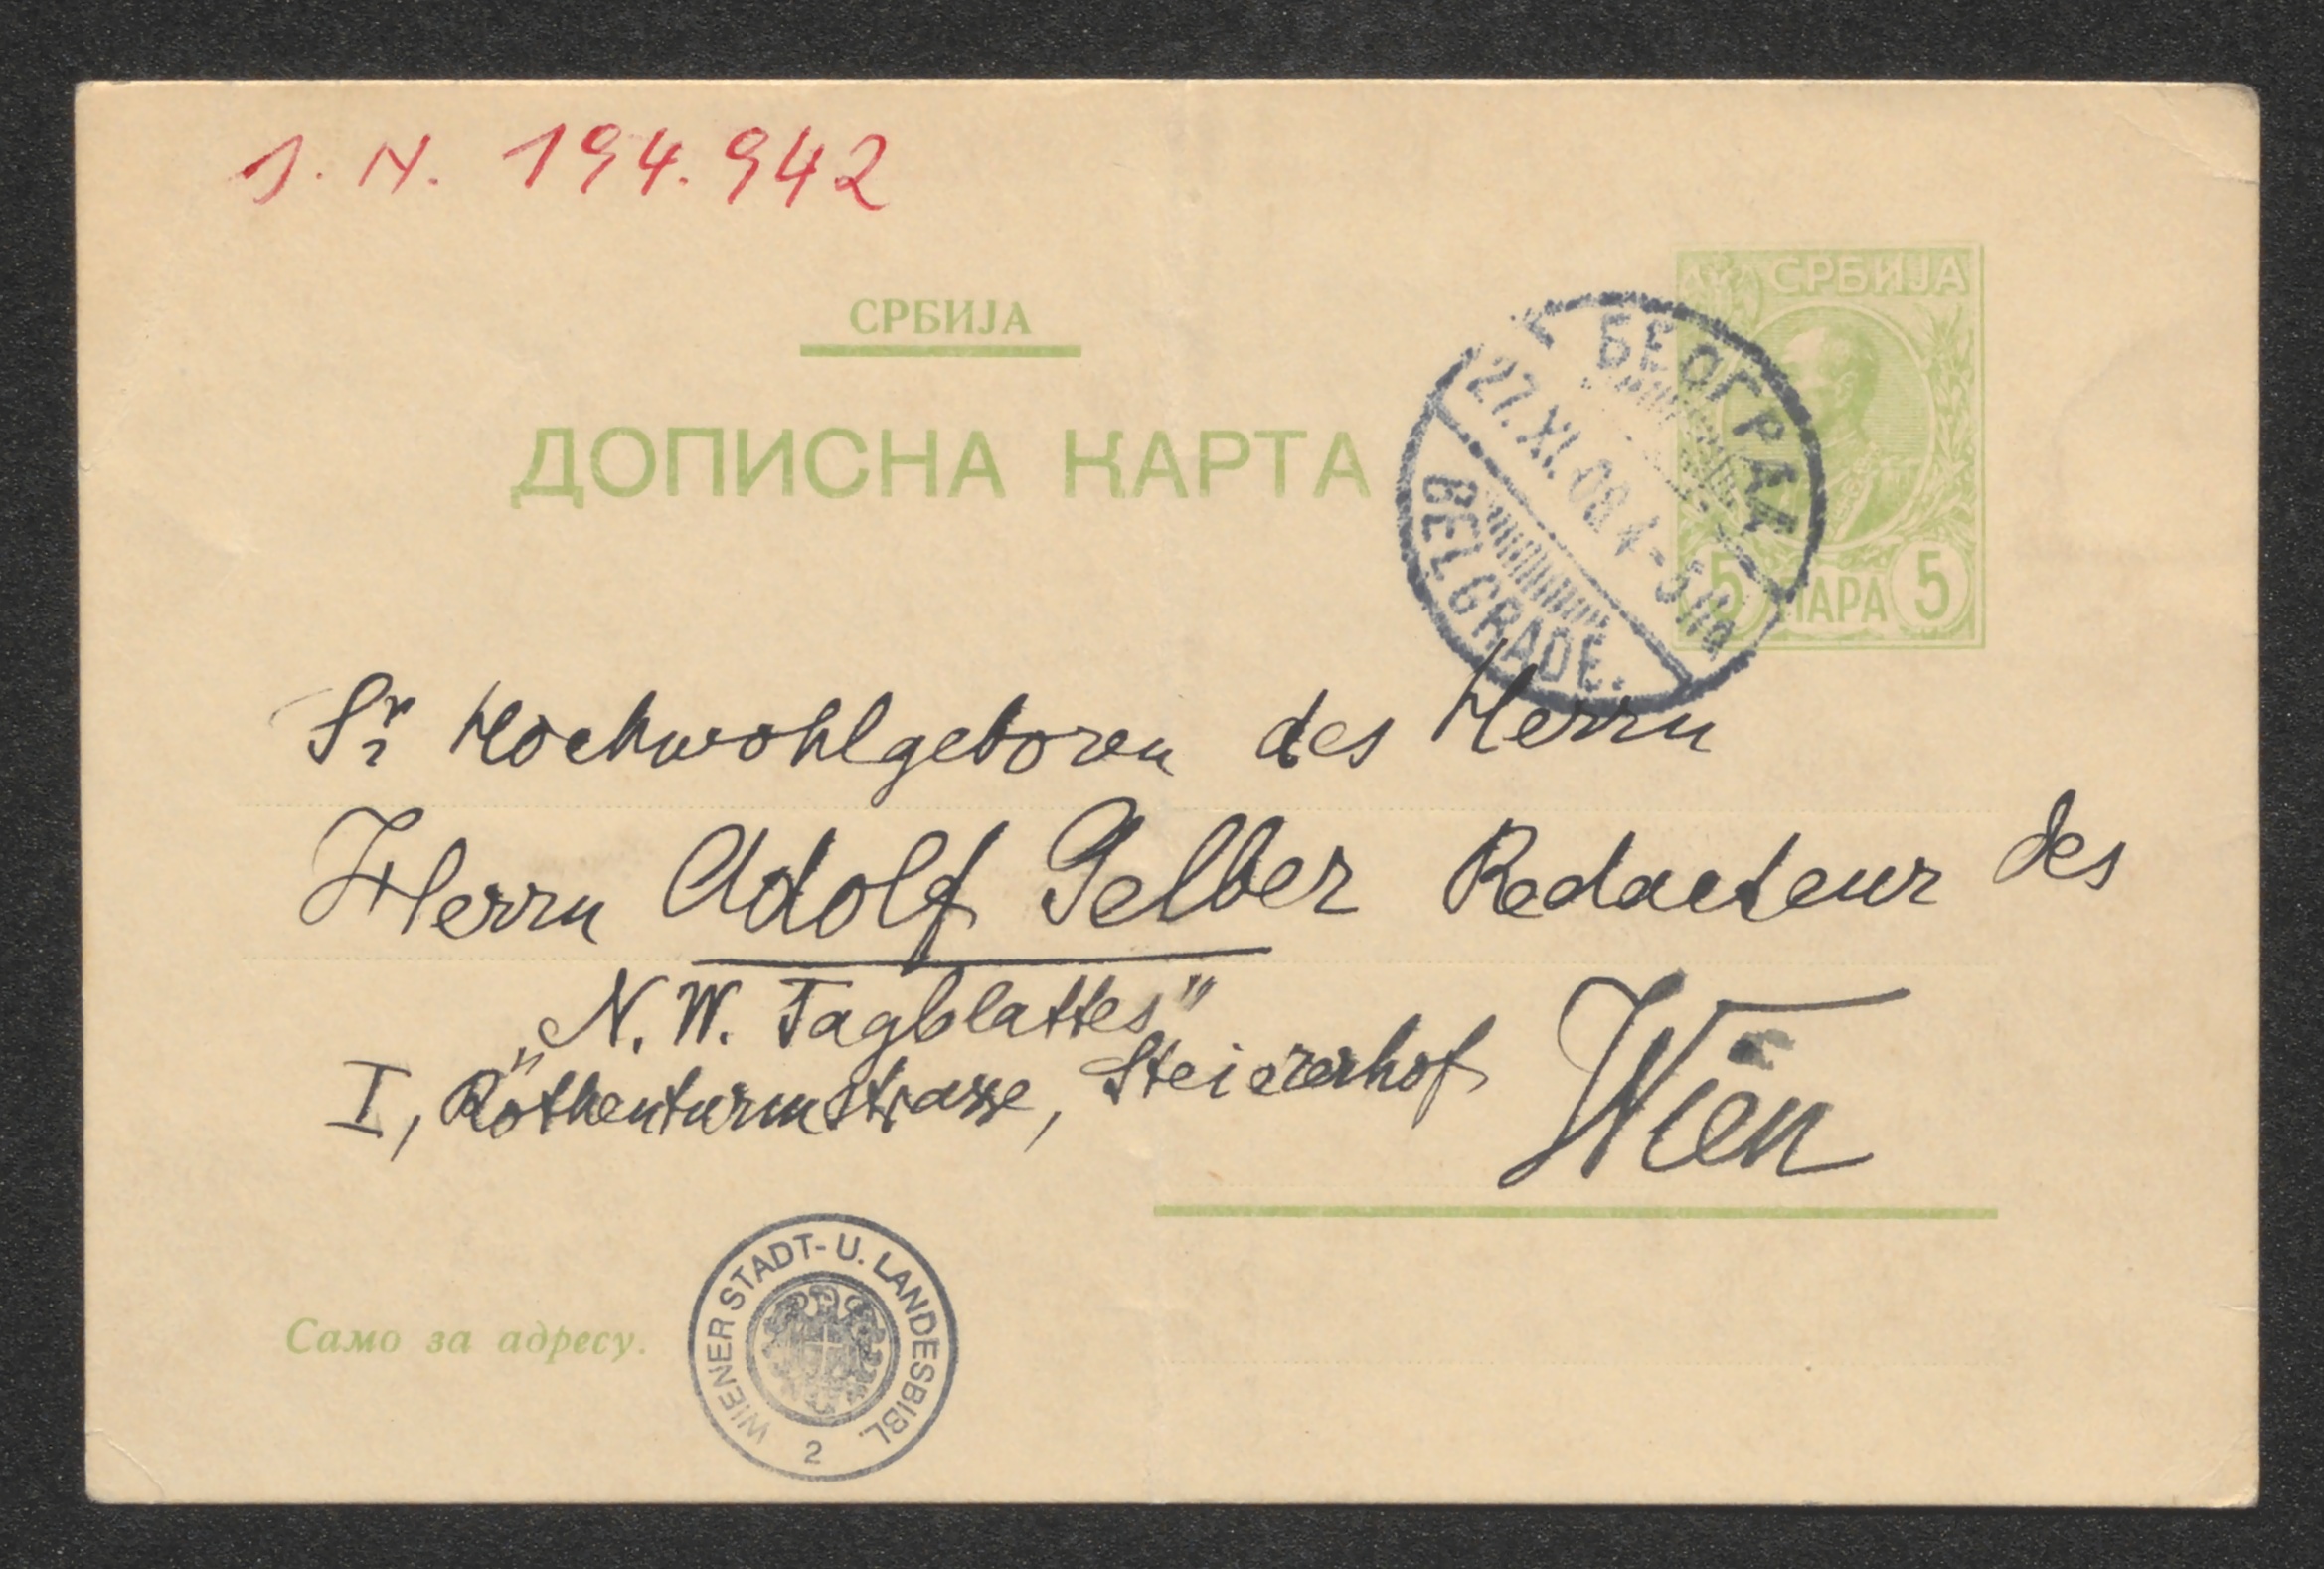 J. N. 194.942
СРБИЈА
ДОПИСНА КАРТА
СРБИЈА
5 ПАРА 5
БЕОГРАД
27.XI.08.4-5
BELGRADE.
Sr Hochwohlgeboren des Herrn
Herrn Adolf Gelber Redacteur des
„N. W. Tagblattes"
I, Röthenturmstrasse, Steiererhof
Wien
Само за адресу.
WIENER STADT- U. LANDESBIBL.
2